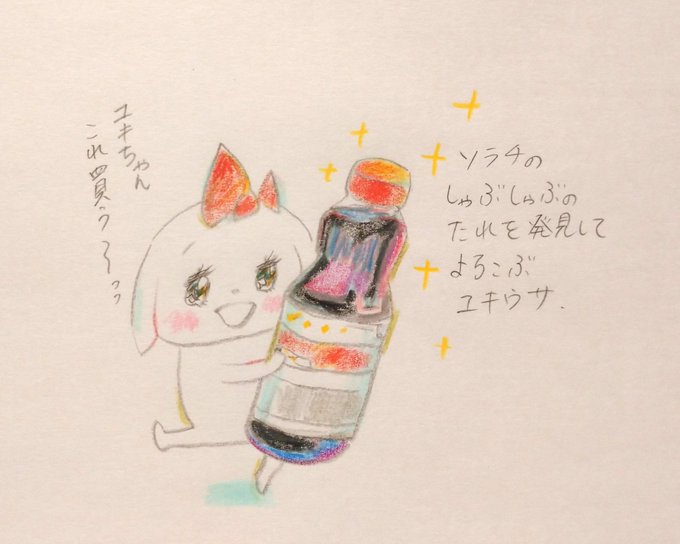 ユキちゃん
これ買う〜ッッ
ソラチの
しゃぶしゃぶの
たれを発見して
よろこぶ
ユキウサ.